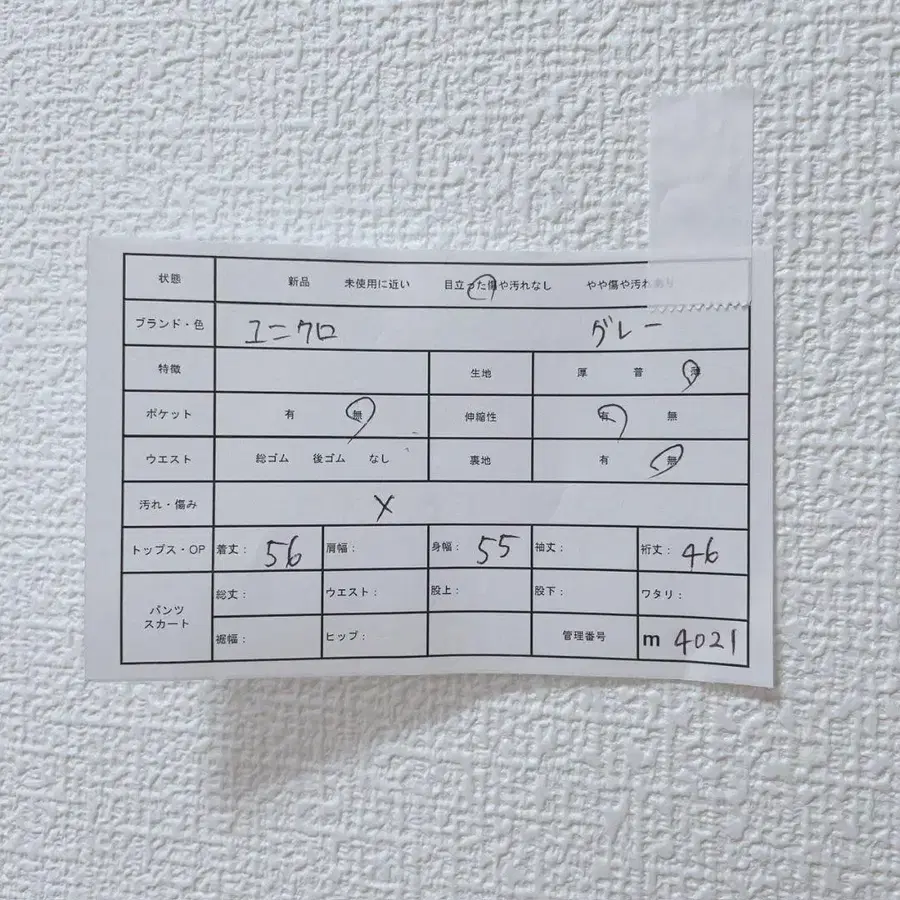 状態 新品 未使用に近い 目立った傷や汚れなし やや傷や汚れあり
ブランド・色 ユニクロ グレー
特徴 生地 厚 普 薄
ポケット 有 無 伸縮性 有 無
ウエスト 総ゴム 後ゴム なし 裏地 有 無
汚れ・傷み X
トップス・OP 着丈: 56 肩幅: 身幅: 55 袖丈: 裄丈: 46
パンツ スカート 総丈: ウエスト: 股上: 股下: ワタリ:
裾幅: ヒップ: 管理番号 m 4021